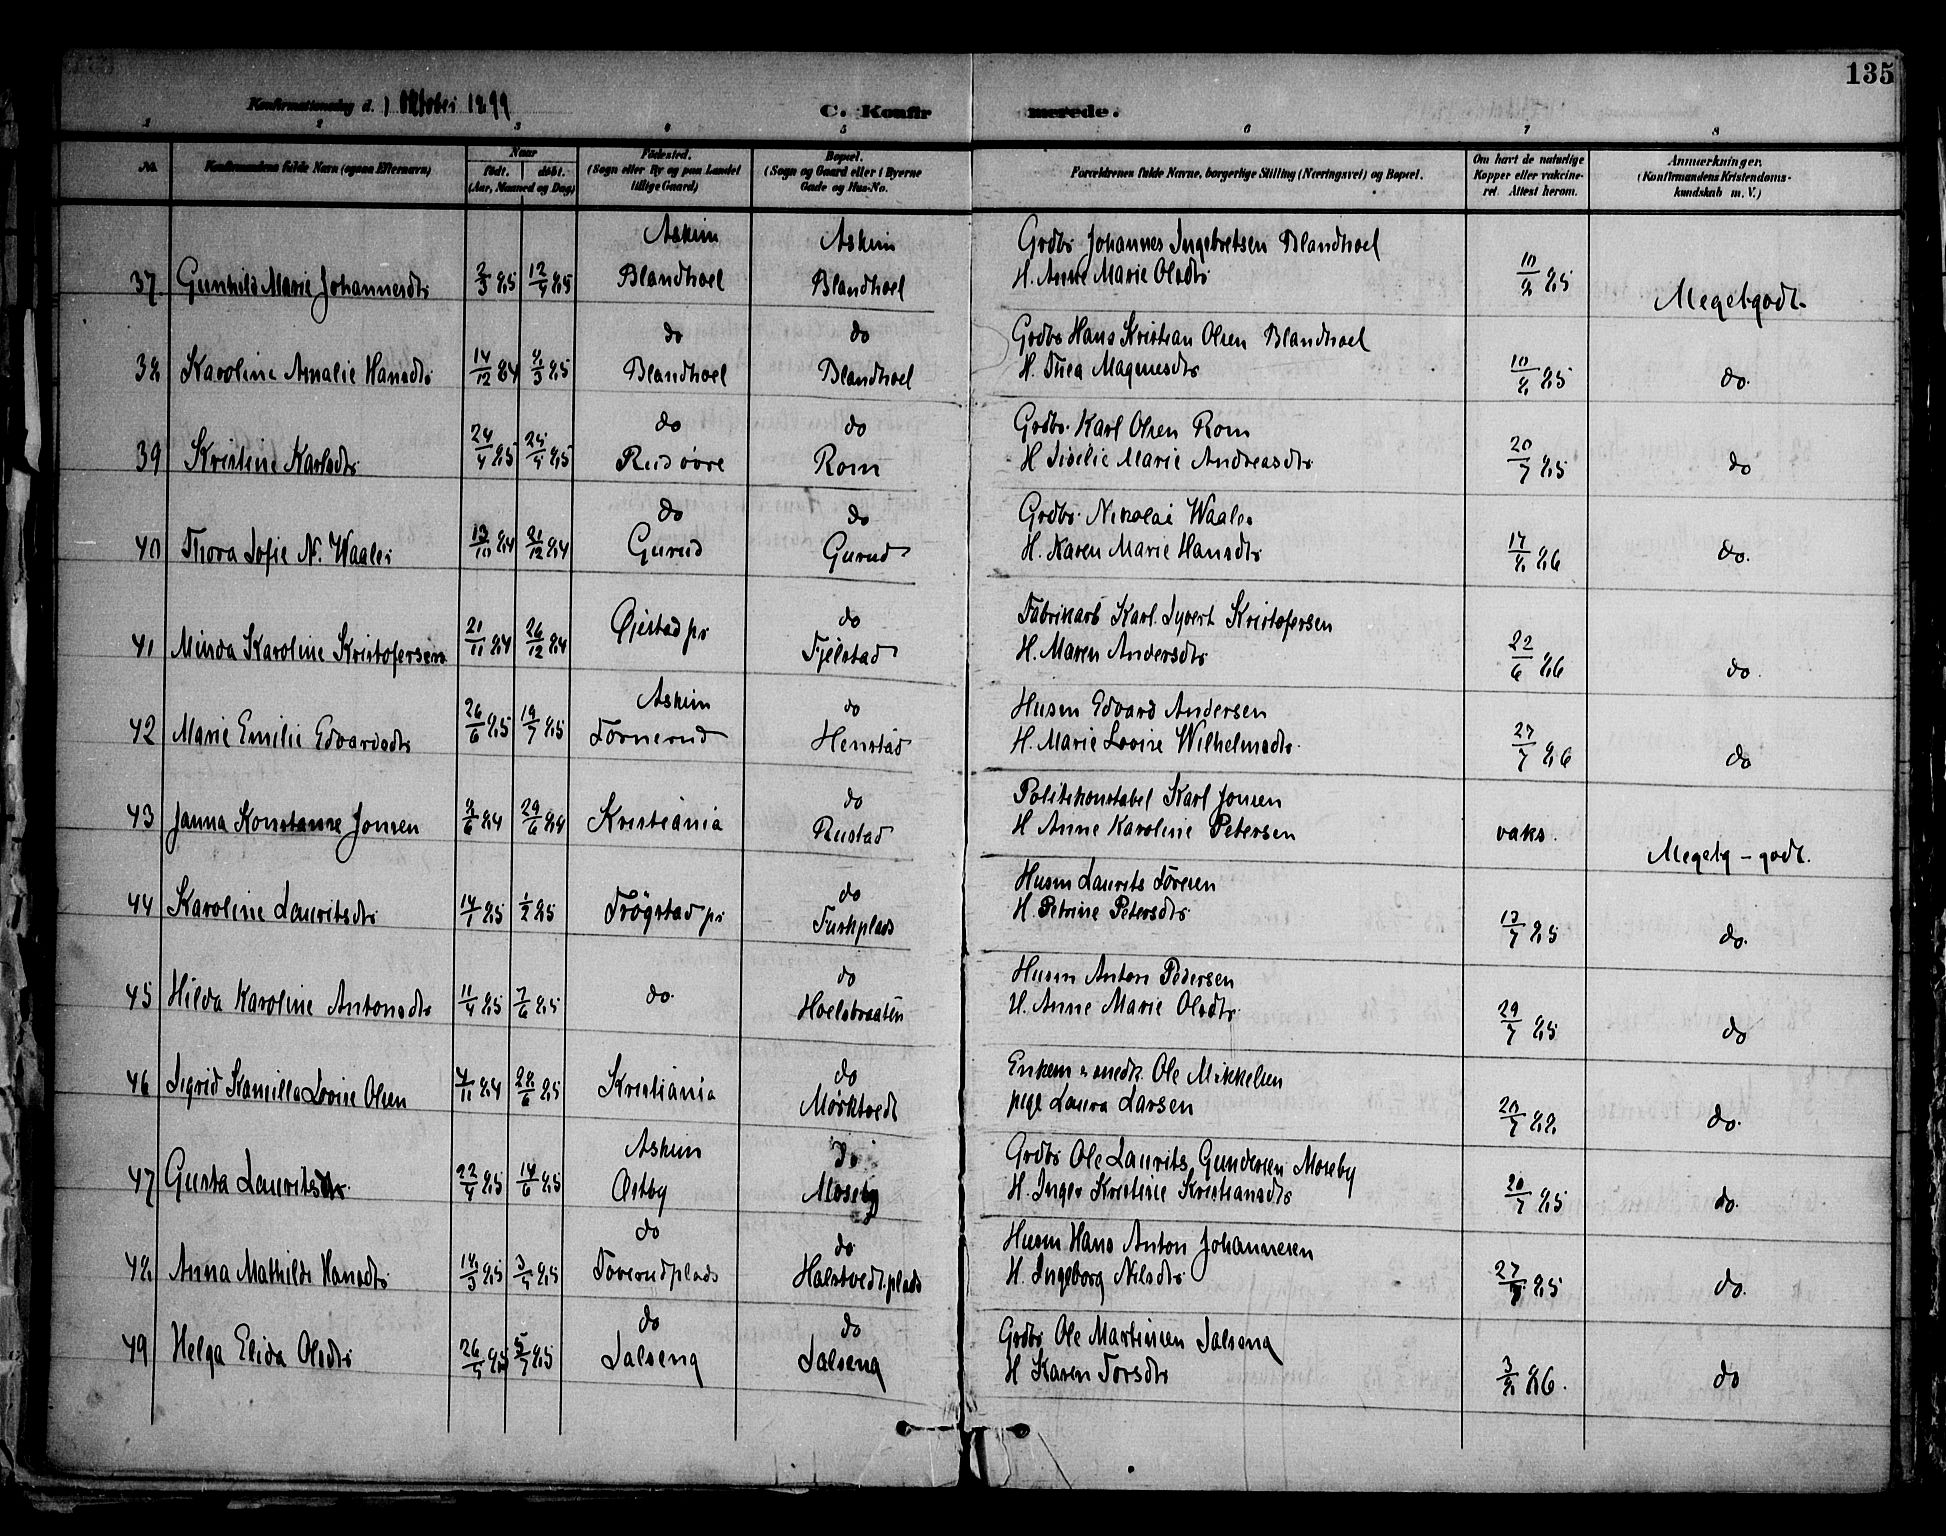 135
Konfirmationsdag d. 1 Oktober 1899
C. Konfirmerede.
1 2 3 4 5 6 7 8
No.
Konfirmandens fulde Navn (ogsaa Efternavn)
Naar
født. døbt.
(Aar, Maaned og Dag)
Fødested.
(Sogn eller By og paa Landet
tillige Gaard)
Bopæl.
(Sogn og Gaard eller i Byerne
Gade og Hus-No.
Forældrenes fulde Navne, borgerlige Stilling (Næringsvei) og Bopæl.
Om havt de naturlige
Kopper eller vaccine-
ret Attest herom.
Anmærkninger.
(Konfirmandens Kristendoms-
kundskab m. V.)
Askim Askim Grdbr Johannes Ingebretsen Blandhoel
37. Gunhild Marie Johannesdtr 2/3 85 12/4 85 Blandhoel Blandhoel H. Anne Marie Olsdtr 10/8 85 Megetgodt.
do do Grdbr Hans Kristian Olsen Blandhoel
38 Karoline Amalie Hansdtr 14/12 84 8/3 85 Blandhoel Blandhoel H. Thea Magnesdtr 10/8 85 do.
do do Grdbr. Karl Olsen Rom
39 Kristine Karlsdtr 24/4 85 25/5 85 Rud øvre Rom H Marie Andreasdtr 20/7 85 do
do do Grdbr. Nikolai Waaler
40 Thora Sofie N. Waaler 13/10 84 21/12 84 Gurud Gurud H. Karen Marie Hansdtr 17/8 86 do.
do Fabrikarb Karl Syvert Kristofersen
41 Minda Karoline Kristofersen 21/11 84 26/12 84 Øiestad pr Fjelstad H. Maren Andersdtr 22/6 86 do.
Askim do Husm Edvard Andersen
42 Marie Emilie Edvardsdtr 26/6 85 19/7 85 Tornerud Henstad H. Marie Lovise Wilhelmsdtr. 27/7 86 do
do Politikonstabel Karl Jonsen
43 Janna Konstanse Jonsen 8/6 84 29/6 84 Kristiania Rustad H Anne Karoline Petersen vaks. Megetg - godt.
do Husm Laurits Toresen
44 Karoline Lauritsdtr 14/1 85 1/2 85 Trøgstad pr Turkplads H. Petrine Petersdtr 13/7 85 do.
do Husm Anton Pedersen
45 Hilda Karoline Antonsdtr 11/4 85 7/6 85 do. Hoelsbraaten H. Anne Marie Olsdtr. 29/7 85 do
do Enkem Ole Mikkelsen
46 Sigrid Kamilla Lovise Olsen 4/11 84 28/6 85 Kristiania Mørktvedt pige Laura Larsen 20/7 88 do.
Askim do Grdbr Ole Laurits Gundersen Moseby
47 Gusta Lauritsdtr. 22/4 85 14/6 85 Østby Moseby H. Inger Kristine Kristiansdtr 20/7 85 do.
do do Husm Hans Anton Johannesen
48 Anna Mathilde Hansdtr 18/3 85 3/5 85 Toverudplads Halstvedt.plads H. Ingeborg Nilsdtr 27/7 85 do.
do do Grdbr Ole Martinsen Salseng
49 Helga Elida Olsdtr 26/5 85 5/7 85 Salseng Salseng H Karen Torsdtr 3/8 86. do